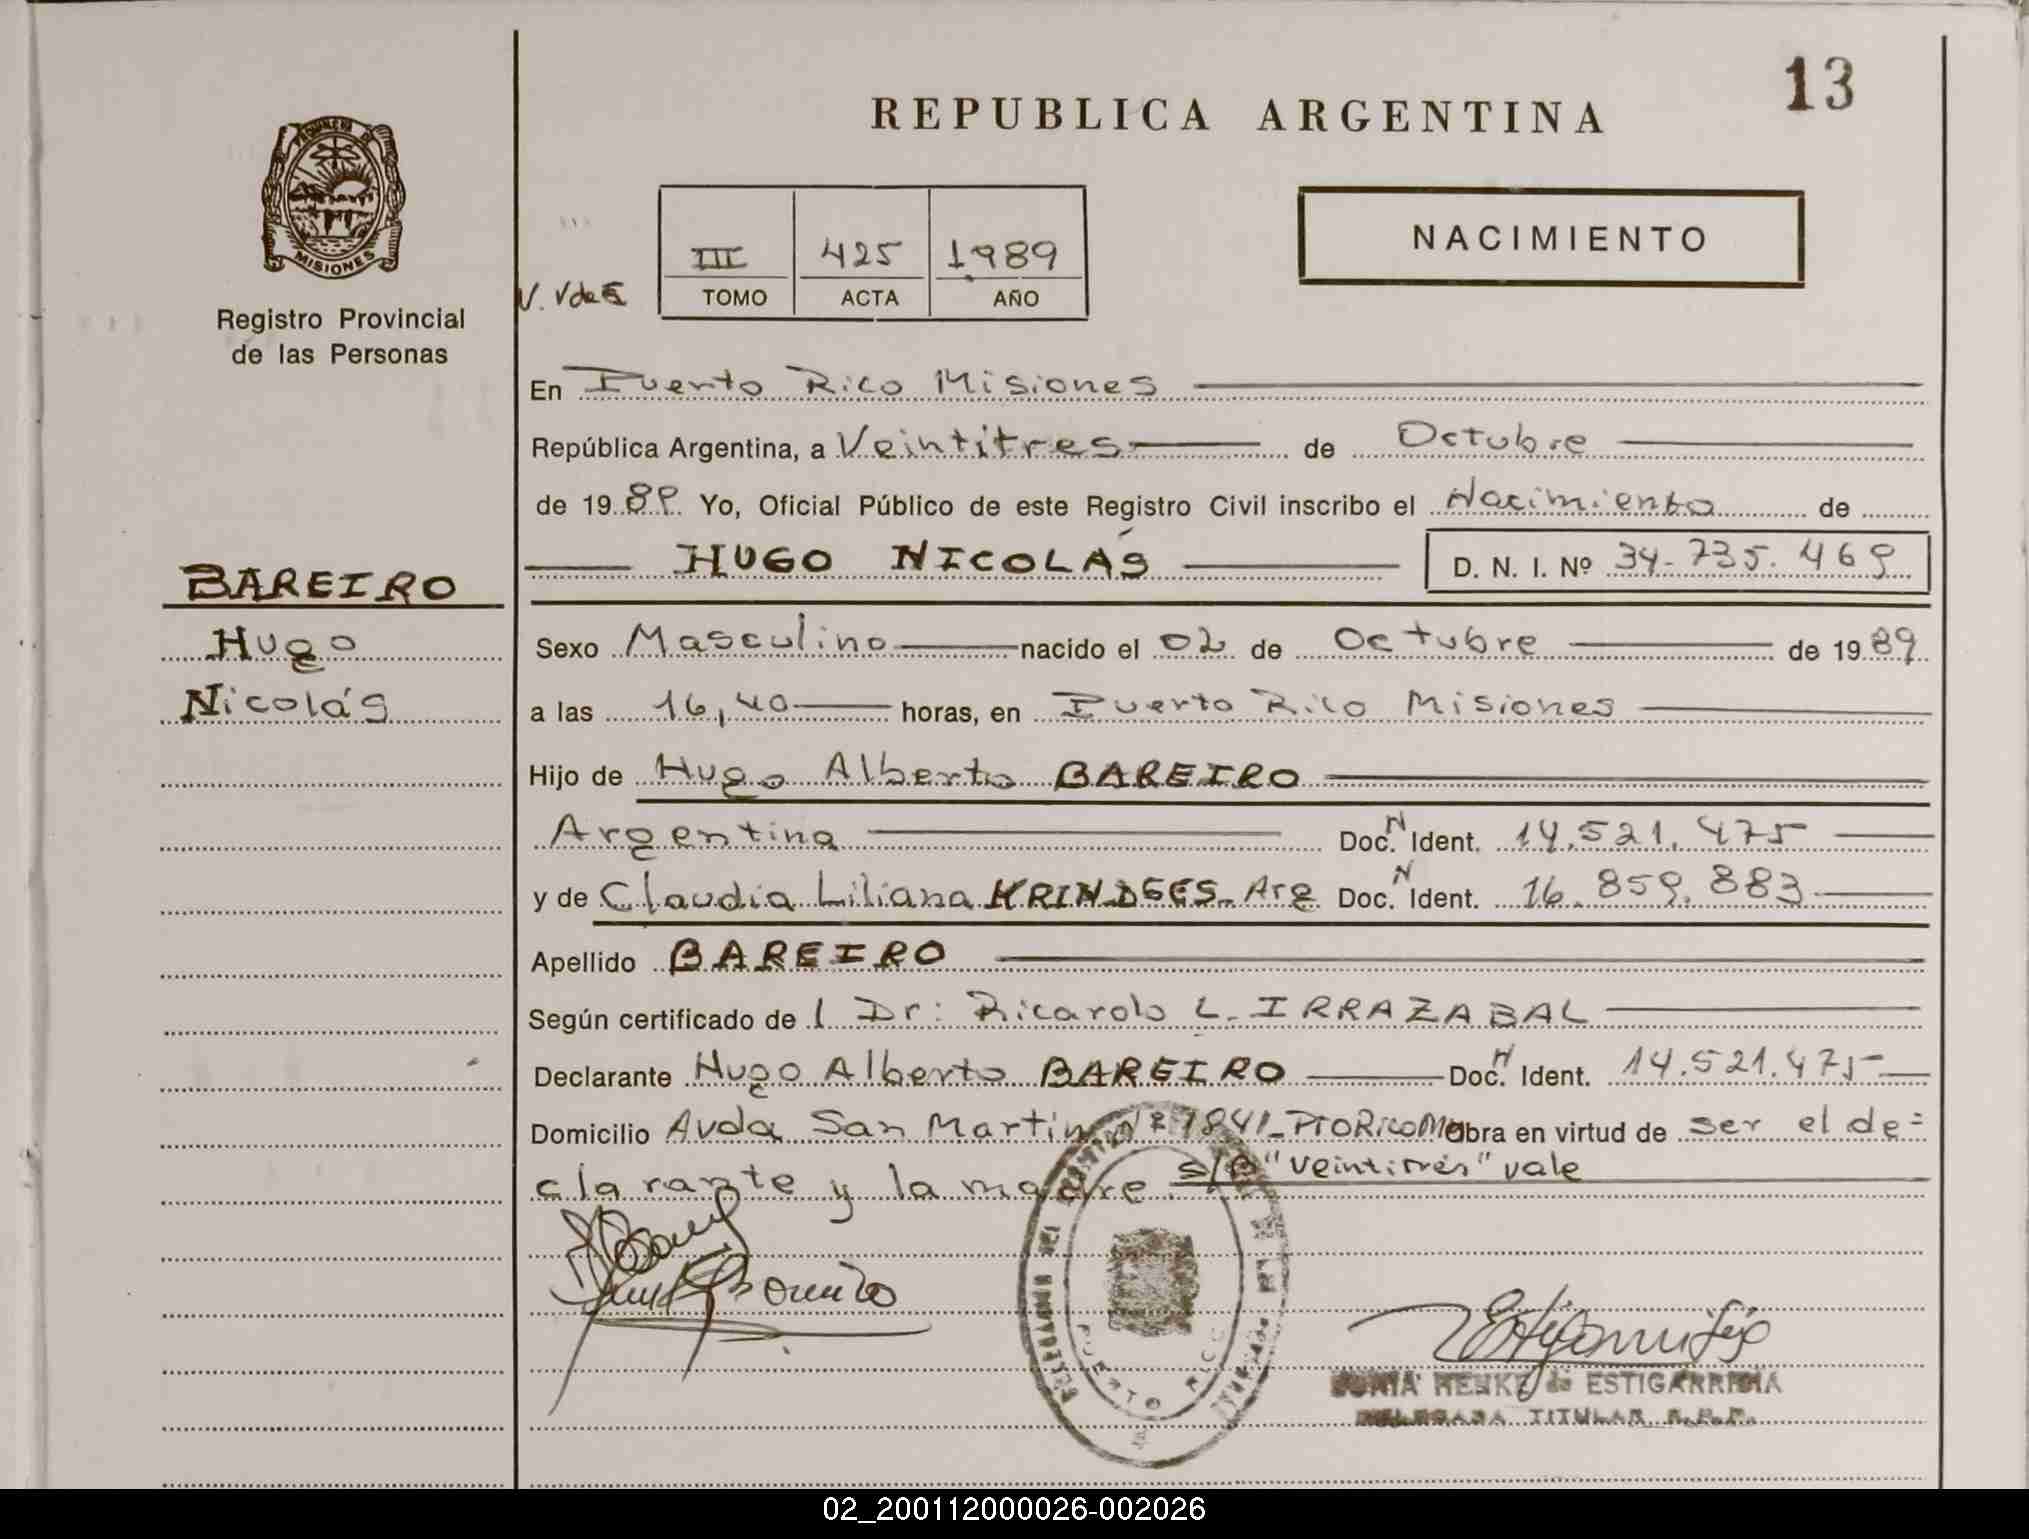 13
REPUBLICA ARGENTINA
PROVINCIA DE
MISIONES
Registro Provincial
de las Personas
III 425 1989
TOMO ACTA AÑO
NACIMIENTO
En Puerto Rico Misiones
República Argentina, a Veintitres de Octubre
de 19 89 Yo, Oficial Público de este Registro Civil inscribo el Nacimiento de
HUGO NICOLÁS D. N. I. Nº 34-735.469
BAREIRO
Hugo
Nicolás
Sexo Masculino nacido el 02 de Octubre de 19 89
a las 16,40 horas, en Puerto Rico Misiones
Hijo de Hugo Alberto BAREIRO
Argentina Doc. N Ident. 14.521.475
y de Claudia Liliana KRINDGES Arg Doc. N Ident. 16.859.883
Apellido BAREIRO
Según certificado de l Dr: Ricardo L. IRRAZABAL
Declarante Hugo Alberto BAREIRO Doc. N Ident. 14.521.475
Domicilio Avda San Martin Nº 1841_PtoRicoMs Obra en virtud de ser el de=
clarante y la madre. s/B "veintitrés" vale
PUERTO RICO
SONIA HENKE de ESTIGARRIBIA
DELEGADA TITULAR R.P.P.
02_200112000026-002026